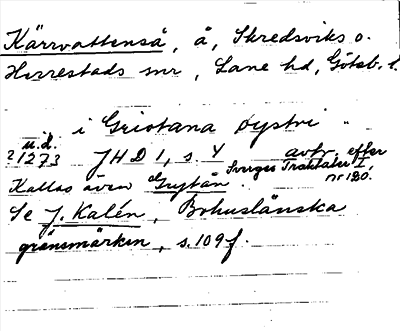 Kärrvattenså, å, Skredsviks o.
Herrestads snr, Lane hd, Götsb. l.
i Griotana øystri "
u.d.
?1273 JHD 1, s. 4 avtr. efter
Sveriges Traktater I,
Kallas även Grytån. nr 120.
Se J. Kalén, Bohuslänska
gränsmärken, s. 109 f.